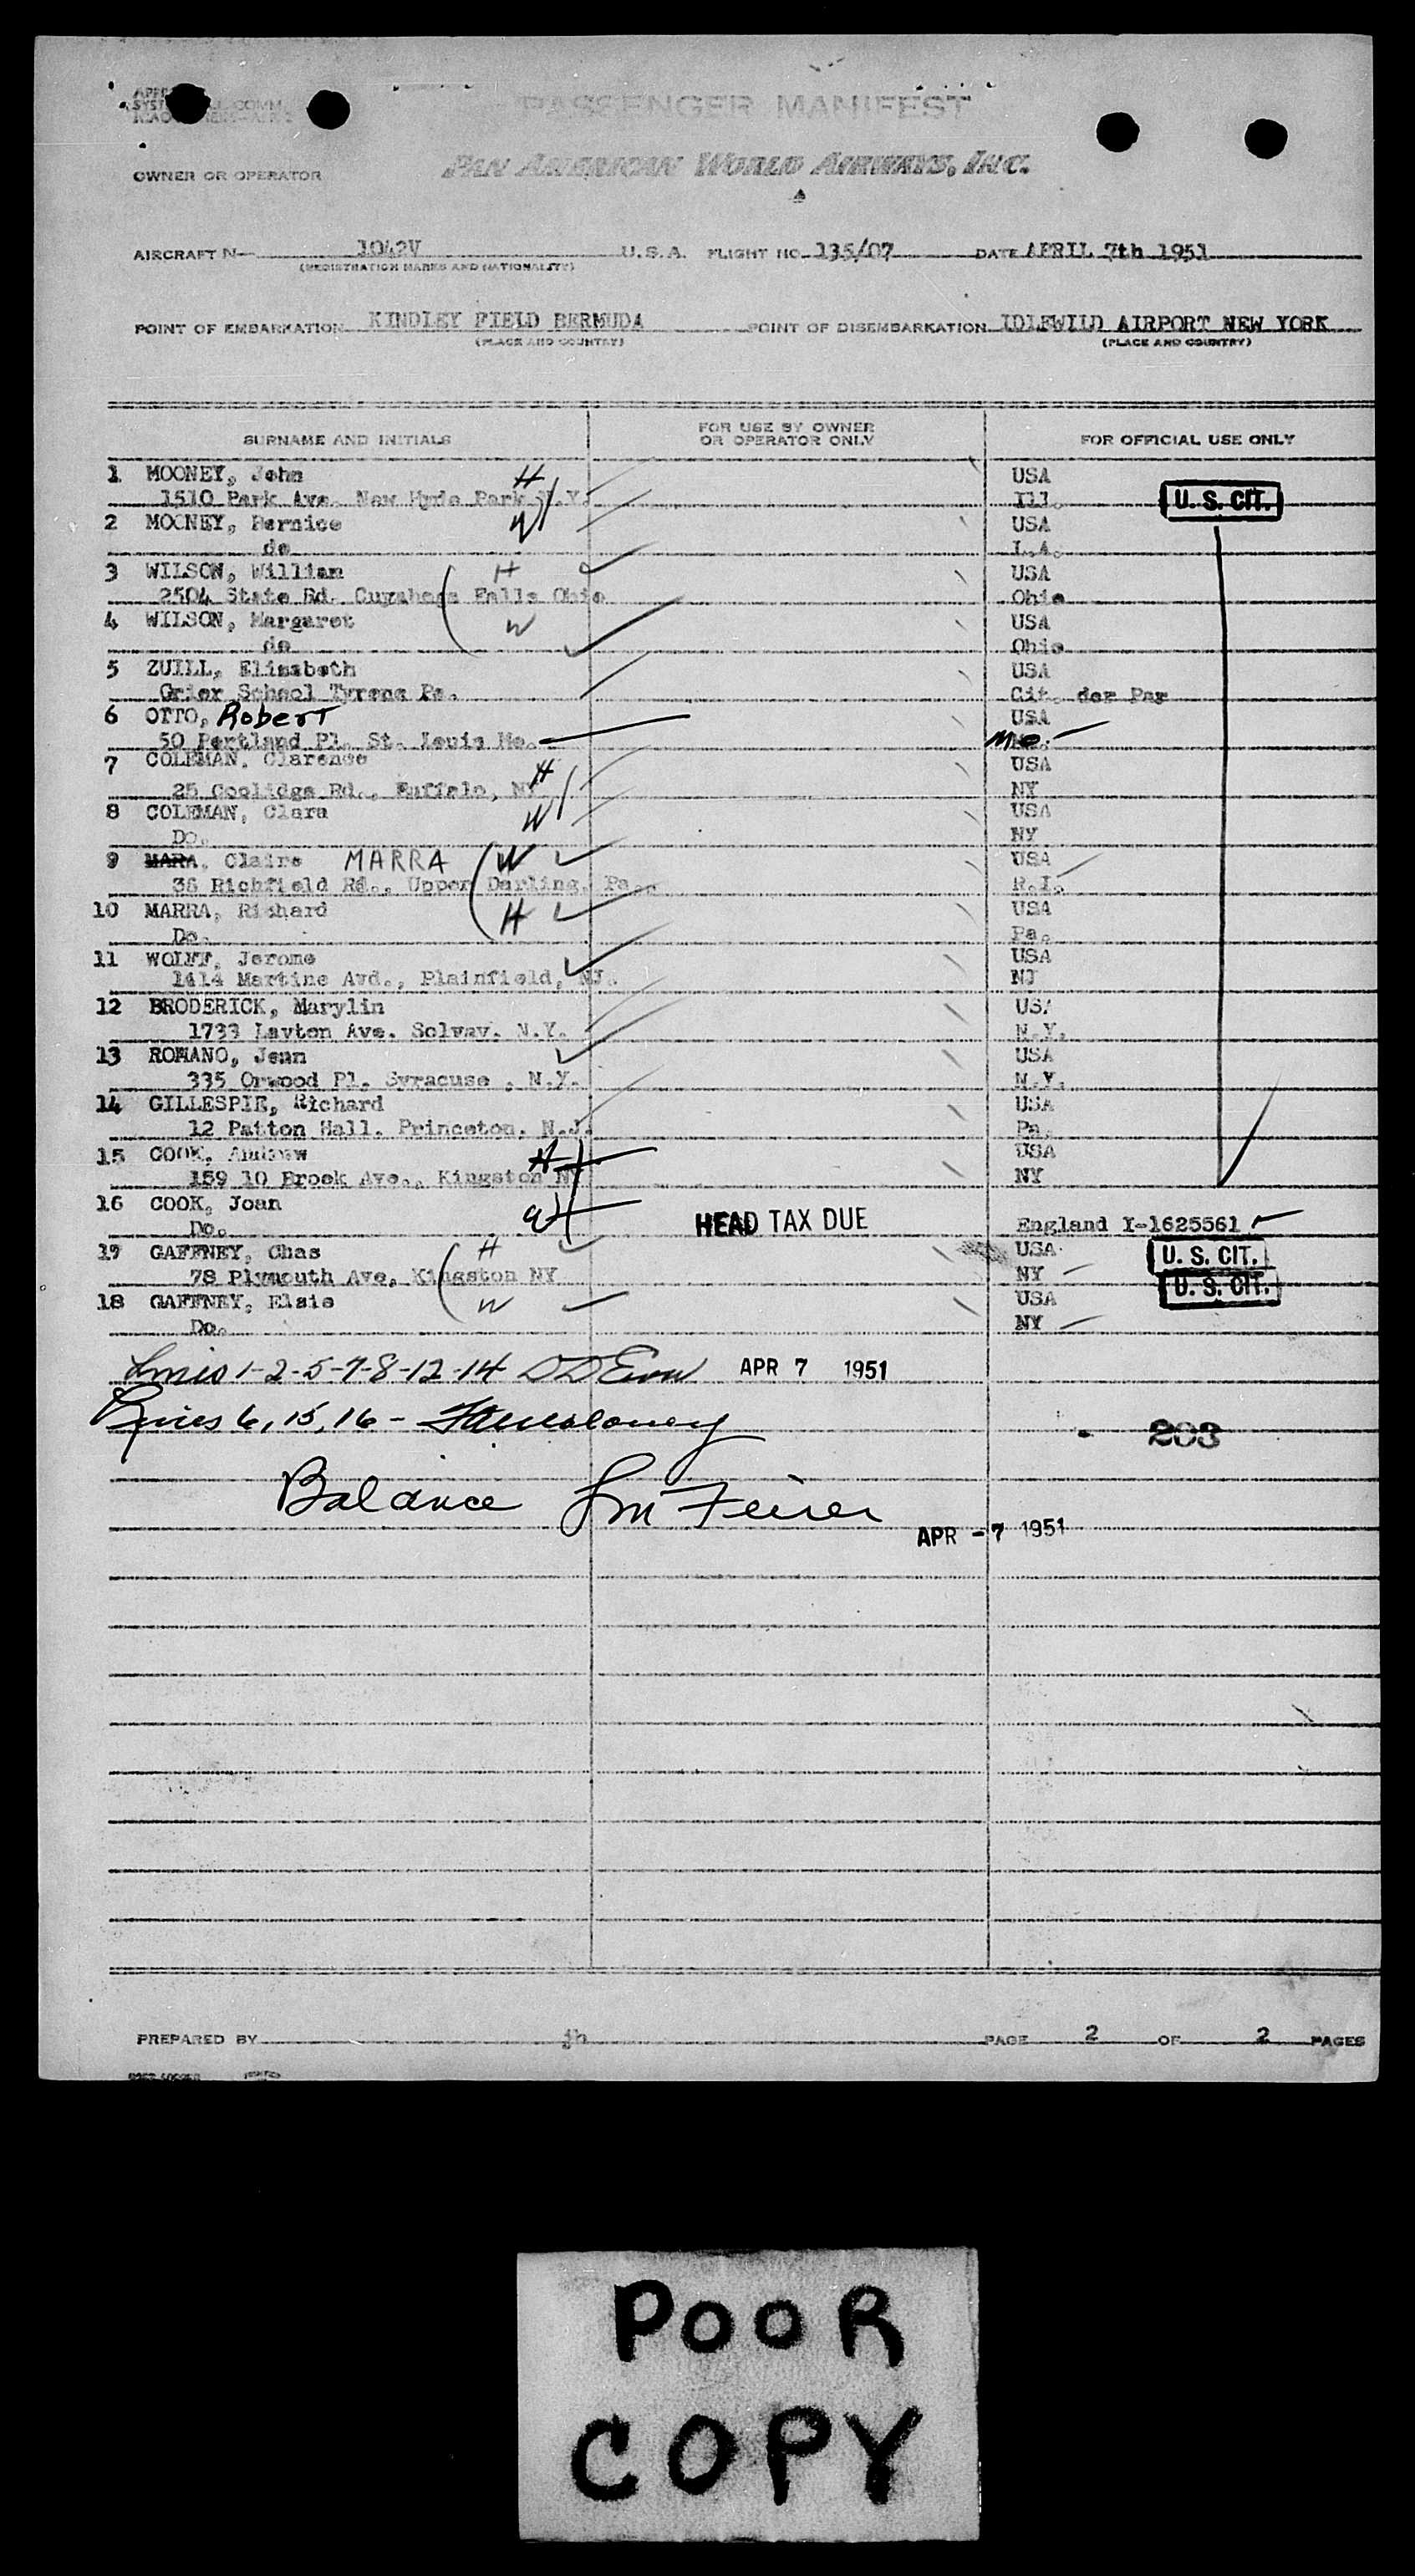 PASSENGER MANIFEST
OWNER OR OPERATOR PAN AMERICAN WORLD AIRWAYS, INC.
AIRCRAFT N 1042V U.S.A. FLIGHT NO. 135/07 DATE APRIL 7th 1951
(REGISTRATION MARKS AND NATIONALITY)
POINT OF EMBARKATION KINDLEY FIELD BERMUDA POINT OF DISEMBARKATION IDLEWILD AIRPORT NEW YORK
(PLACE AND COUNTRY) (PLACE AND COUNTRY)
SURNAME AND INITIALS FOR USE BY OWNER OR OPERATOR ONLY FOR OFFICIAL USE ONLY
1 MOONEY, John H USA
1510 Park Ave. New Hyde Park N.Y. Ill. U. S. CIT.
2 MOONEY, Bernice W USA
do
3 WILSON, William H USA
2504 State Rd. Cuyahoga Falls Ohio Ohio
4 WILSON, Margaret W USA
do Ohio
5 ZUILL, Elizabeth USA
Grier School Tyrone Pa. Cit. der Par
6 OTTO, Robert USA
50 Portland Pl. St. Louis Mo. Mo.
7 COLEMAN, Clarence H USA
25 Coolidge Rd., Buffalo, NY NY
8 COLEMAN, Clara W USA
Do. NY
9 MARA, Claire MARRA W USA
38 Richfield Rd., Upper Darling, Pa. R.I.
10 MARRA, Richard H USA
Do. Pa.
11 WOLFF, Jerome USA
1414 Martine Avd., Plainfield, NJ. NJ
12 BRODERICK, Marylin USA
1733 Layton Ave. Solvay. N.Y. N.Y.
13 ROMANO, Jean USA
335 Orwood Pl. Syracuse , N.Y. N.Y.
14 GILLESPIE, Richard USA
12 Patton Hall. Princeton. N.J. Pa.
15 COOK, Andrew H USA
159 10 Brook Ave., Kingston NY NY
16 COOK, Joan W
Do. HEAD TAX DUE England I-1625561
17 GAFFNEY, Chas H USA
78 Plymouth Ave, Kingston NY NY U. S. CIT.
18 GAFFNEY, Elsie W USA U. S. CIT.
Do. NY
Lines 1-2-5-7-8-12-14 APR 7 1951
Lines 6, 15, 16 - 203
Balance
APR -7 1951
PREPARED BY jh PAGE 2 OF 2 PAGES
POOR
COPY